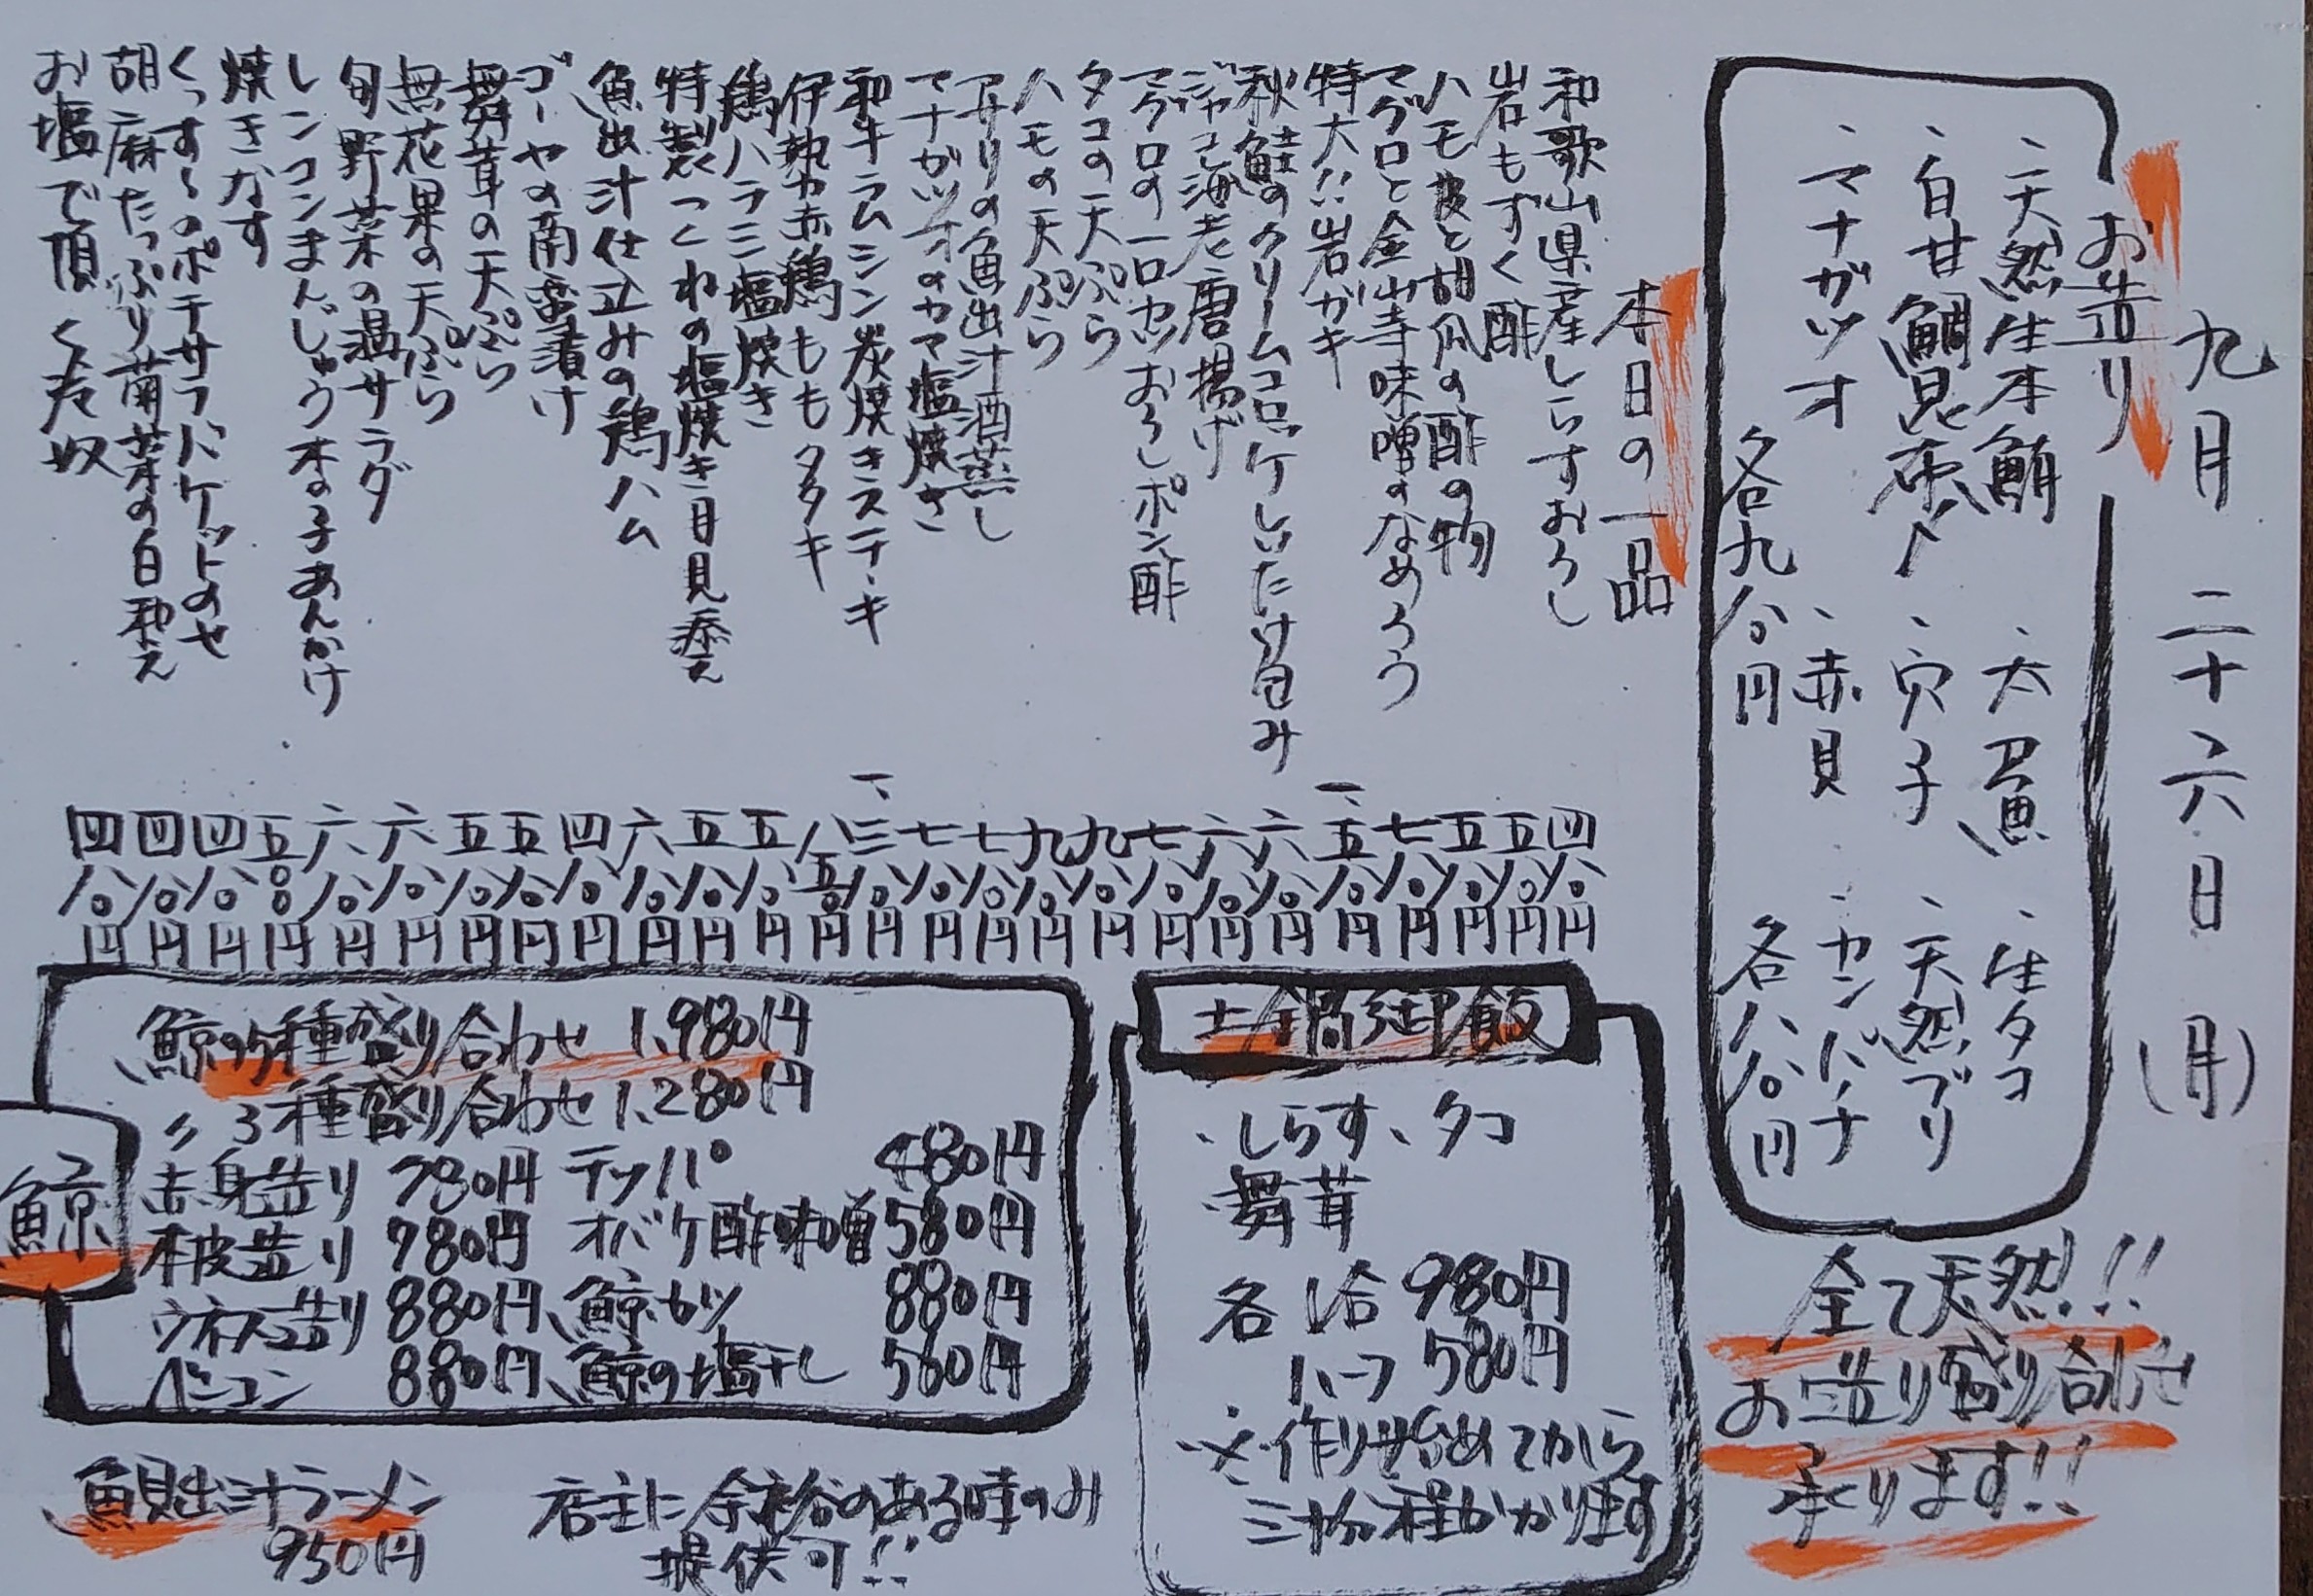 九月二十六日(月)
お造り
、天然生本鮪
、白甘鯛昆布〆
、マナガツオ
、太刀魚
、穴子
、赤貝
各九八〇円
、生タコ
、天然ブリ
、カンパチ
各八八〇円
全て天然!!
お造り盛り合わせ
承ります!!
本日の一品
和歌山県産しらすおろし 四八〇円
岩もずく酢 五八〇円
ハモ皮と胡瓜の酢の物 五八〇円
マグロと金山寺味噌のなめろう 七八〇円
特大!!岩ガキ 一、五八〇円
秋鮭のクリームコロッケしいたけ包み 六八〇円
ジャコ海老唐揚げ 六八〇円
マグロの一口カツおろしポン酢 七八〇円
タコの天ぷら 九八〇円
ハモの天ぷら 九八〇円
アサリの魚出汁酒蒸し 七八〇円
マナガツオのカマ塩焼き 七八〇円
和牛ラムシン炭焼きステーキ 一、三八〇円
伊勢赤鶏ももタタキ 八五〇円
鶏ハラミ塩焼き 五八〇円
特製つくねの塩焼き月見添え 五八〇円
魚出汁仕立みの鶏ハム 六八〇円
ゴーヤの南蛮漬け 四八〇円
舞茸の天ぷら 五八〇円
無花果の天ぷら 五八〇円
旬野菜の温サラダ 六八〇円
レンコンまんじゅう木の子あんかけ 六八〇円
焼きなす 五〇〇円
くっすんのポテサラバケットのせ 四八〇円
胡麻たっぷり菊菜の白和え 四八〇円
お塩で頂く冷奴 四八〇円
土鍋御飯
、しらす、タコ
、舞茸
各 1合 980円
ハーフ 580円
※作り始めてから
三十分程かかります
鯨
鯨の5種盛り合わせ 1,980円
〃 3種盛り合わせ 1,280円
赤身造り 780円 テッパ 480円
本皮造り 780円 オバケ酢味噌 580円
ウネス造り 880円、鯨カツ 880円
ベーコン 880円、鯨の塩干し 560円
魚貝出汁ラーメン
950円
店主に余裕のある時のみ
提供可!!